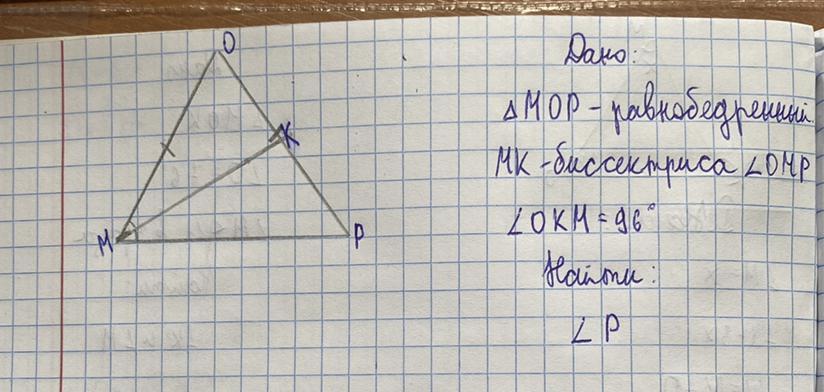 O
K
M
P
Дано:
△MOP - равнобедренный.
MK - биссектриса ∠OMP
∠OKM = 96°
Найти:
∠P